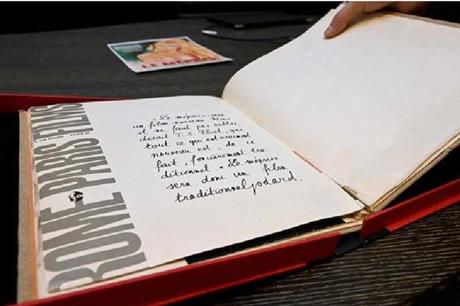 ROME PARIS FILMS
LE MÉPRIS
« Le mépris sera
un film nouveau. Mais
il ne faut pas oublier,
disait T.S. Eliot, que
tout ce qui est vraiment
nouveau est, de ce
fait, forcément tra-
ditionnel. « Le mépris »
sera donc un film
traditionnel. godard.